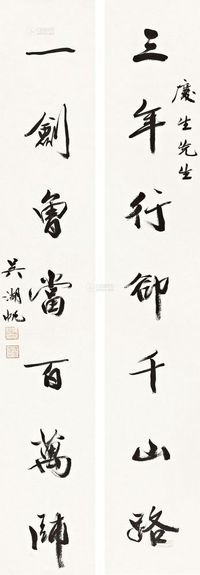 慶生先生
三年行卻千山路
一劍曾當百萬師
吳湖帆